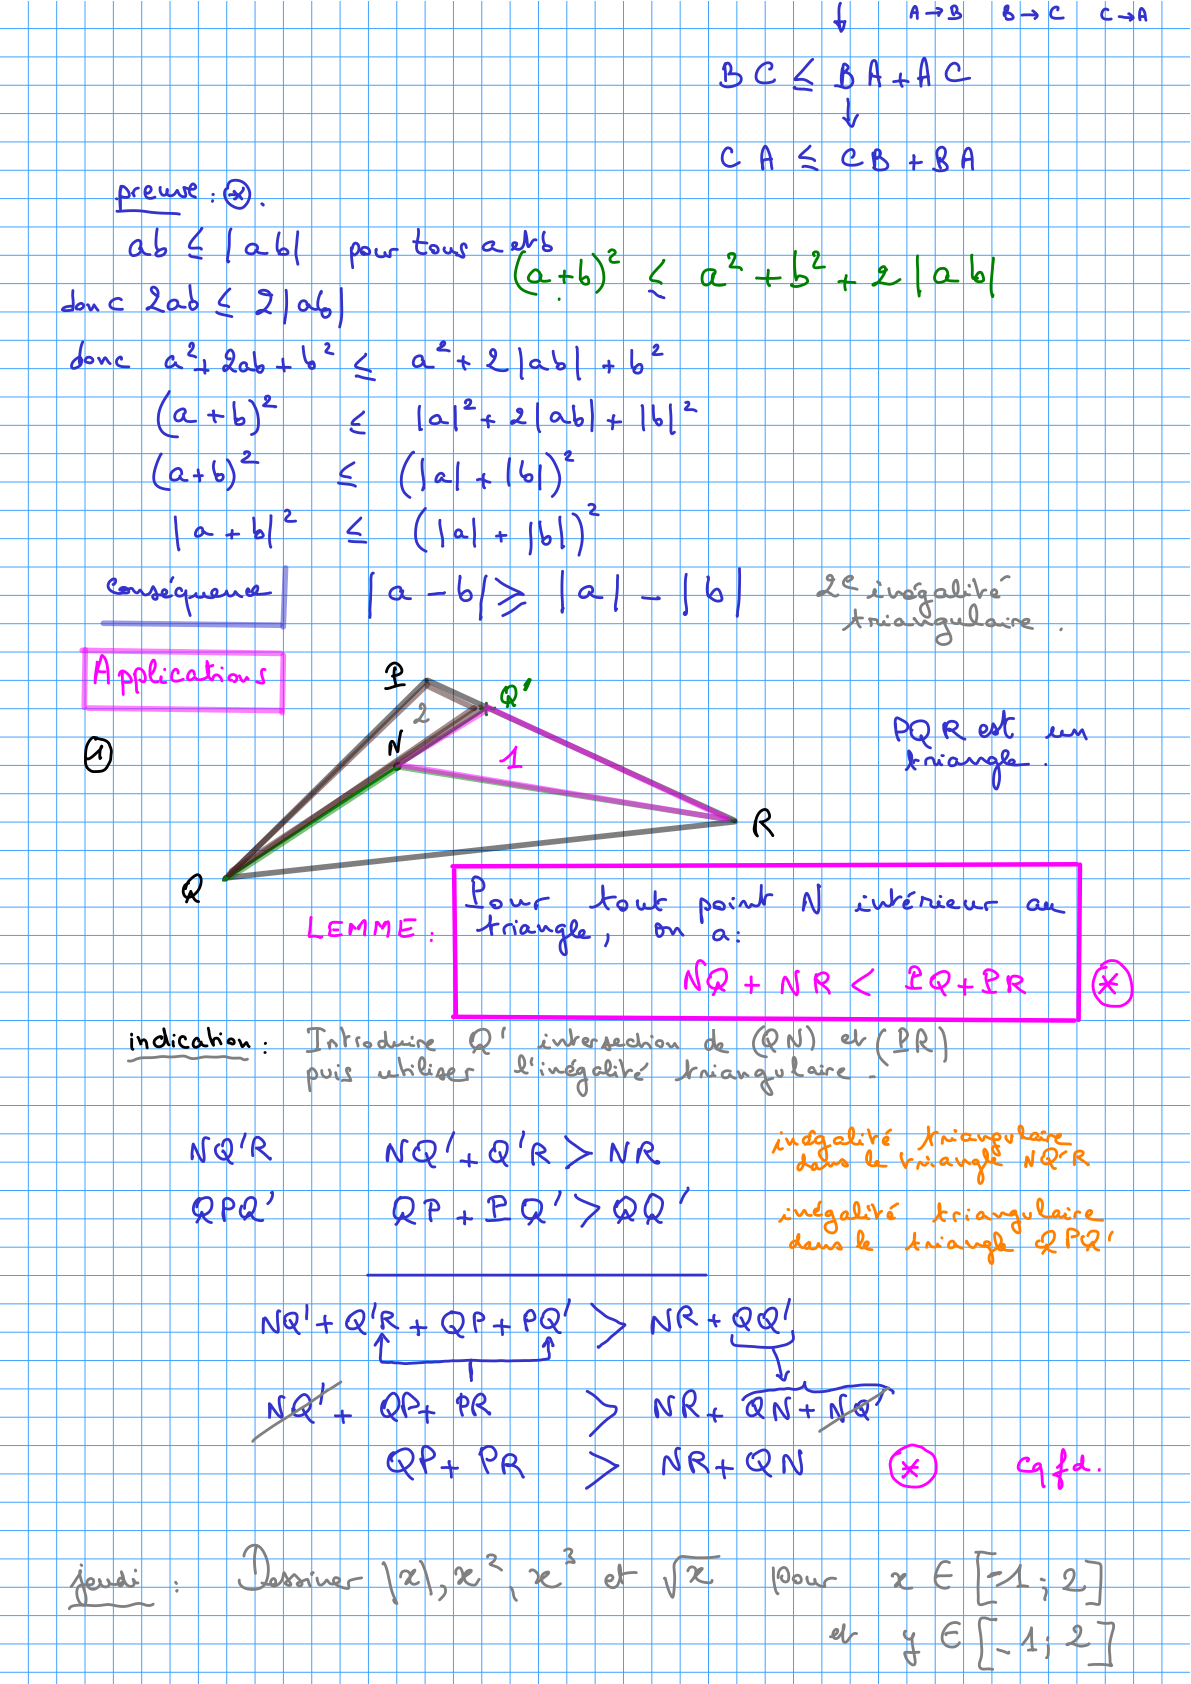 ↓ A→B B→C C→A
BC ≤ BA + AC
↓
CA ≤ CB + BA
preuve : ⊛.
ab ≤ |ab| pour tous a et b
(a+b)² ≤ a² + b² + 2|ab|
donc 2ab ≤ 2|ab|
donc a² + 2ab + b² ≤ a² + 2|ab| + b²
(a+b)² ≤ |a|² + 2|ab| + |b|²
(a+b)² ≤ (|a| + |b|)²
|a+b|² ≤ (|a| + |b|)²
Conséquence |a - b| ≥ |a| - |b| 2e inégalité
triangulaire.
Applications
P
Q'
2
N
1
①
PQR est un
triangle.
R
Q
LEMME :
Pour tout point N intérieur au
triangle, on a :
NQ + NR < PQ + PR ⊛
indication : Introduire Q' intersection de (QN) et (PR)
puis utiliser l'inégalité triangulaire.
NQ'R NQ' + Q'R > NR inégalité triangulaire
dans le triangle NQ'R
QPQ' QP + PQ' > QQ' inégalité triangulaire
dans le triangle QPQ'
NQ' + Q'R + QP + PQ' > NR + QQ'
NQ' + QP + PR > NR + QN + NQ'
QP + PR > NR + QN ⊛ cqfd.
jeudi : Dessiner |x|, x², x³ et √x pour x ∈ [-1 ; 2]
et y ∈ [-1 ; 2]